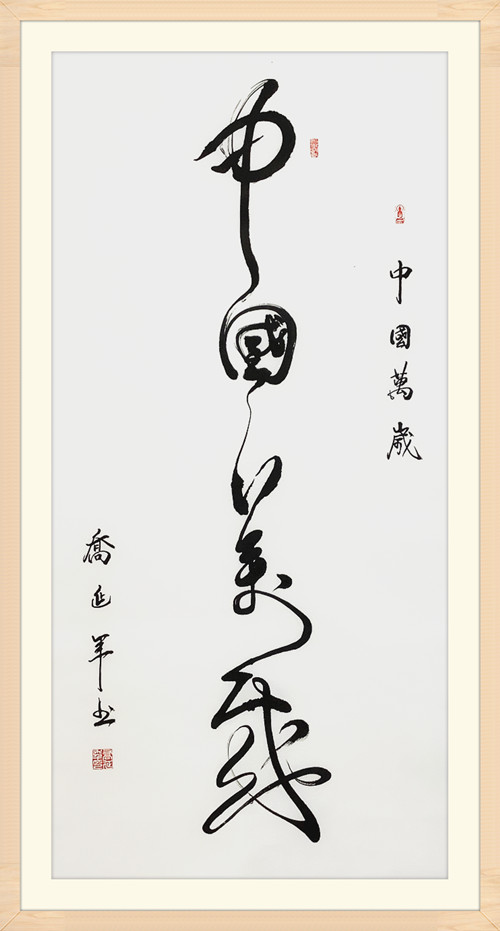 中國萬歲
中國萬歲
喬延軍书